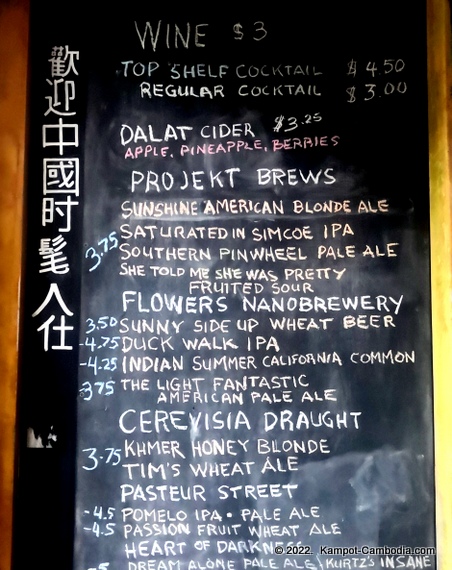 歡迎中國时髦人仕
WINE $3
TOP SHELF COCKTAIL $4.50
REGULAR COCKTAIL $3.00
DALAT CIDER $3.25
APPLE, PINEAPPLE, BERRIES
PROJEKT BREWS
SUNSHINE AMERICAN BLONDE ALE
SATURATED IN SIMCOE IPA
3.75 SOUTHERN PINWHEEL PALE ALE
SHE TOLD ME SHE WAS PRETTY
FRUITED SOUR
FLOWERS NANOBREWERY
3.50 SUNNY SIDE UP WHEAT BEER
-4.75 DUCK WALK IPA
-4.25 INDIAN SUMMER CALIFORNIA COMMON
375 THE LIGHT FANTASTIC
AMERICAN PALE ALE
CEREVISIA DRAUGHT
3.75 KHMER HONEY BLONDE
TIM'S WHEAT ALE
PASTEUR STREET
-4.5 POMELO IPA • PALE ALE
-4.5 PASSION FRUIT WHEAT ALE
HEART OF DARKNESS
-5 DREAM ALONE PALE ALE \ KURTZ'S INSANE
© 2022. Kampot-Cambodia.com